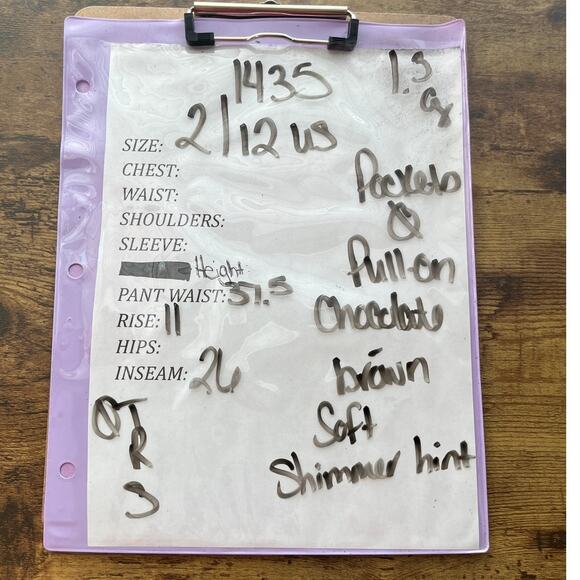 1435
1.3
SIZE: 2/12 us
CHEST:
WAIST:
Pockets
SHOULDERS:
SLEEVE:
Height
Pull-on
PANT WAIST: 37.5
RISE: 11
Chocolate
HIPS:
INSEAM: 26
brown
Soft
R
Shimmer hint